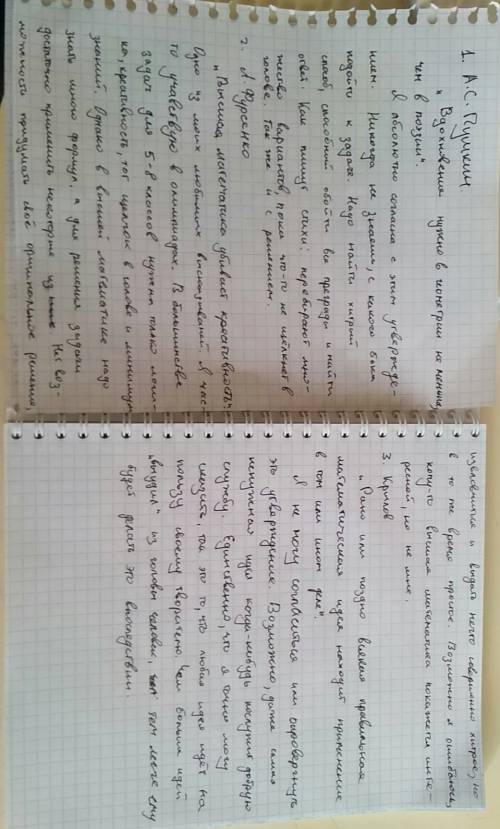 1. А.С. Пушкин.
„Вдохновение нужно в геометрии не меньше,
чем в поэзии".
Я абсолютно согласна с этим утвержде-
нием. Никогда не знаешь, с какого бока
подойти к задаче. Надо найти хитрый
способ, способный обойти все преграды и найти
ответ. Как пишут стихи: перебирают мно-
жество вариантов, пока что-то не щёлкнет в
голове. Так же и с решением.
2. А. Фурсенко
„Высшая математика убивает креативность".
Одно из моих любимых высказываний. Я час-
то участвую в олимпиадах. В большинстве
задач для 5-8 классов нужна только логи-
ка, креативность, тот щелчок в голове и минимум
знаний. Однако в высшей математике надо
знать много формул, а для решения задачи
достаточно применить некоторые из них. Нет воз-
можности придумать своё оригинальное решение,
изловчиться и выдать нечто совершенно хитрое, но
в то же время простое. Возможно я ошибаюсь,
кому-то высшая математика покажется инте-
ресной, но не мне.
3. Крылов
„Рано или поздно всякая правильная
математическая идея находит применение
в том или ином деле".
Я не могу согласиться или опровергнуть
это утверждение. Возможно, даже самая
ненужная идея когда-нибудь послужит добрую
службу. Единственно, что я точно могу
сказать, так это то, что любая идея идёт на
пользу своему творителю. Чем больше идей
„выудил" из головы человек, тем легче ему
будет делать это впоследствии.